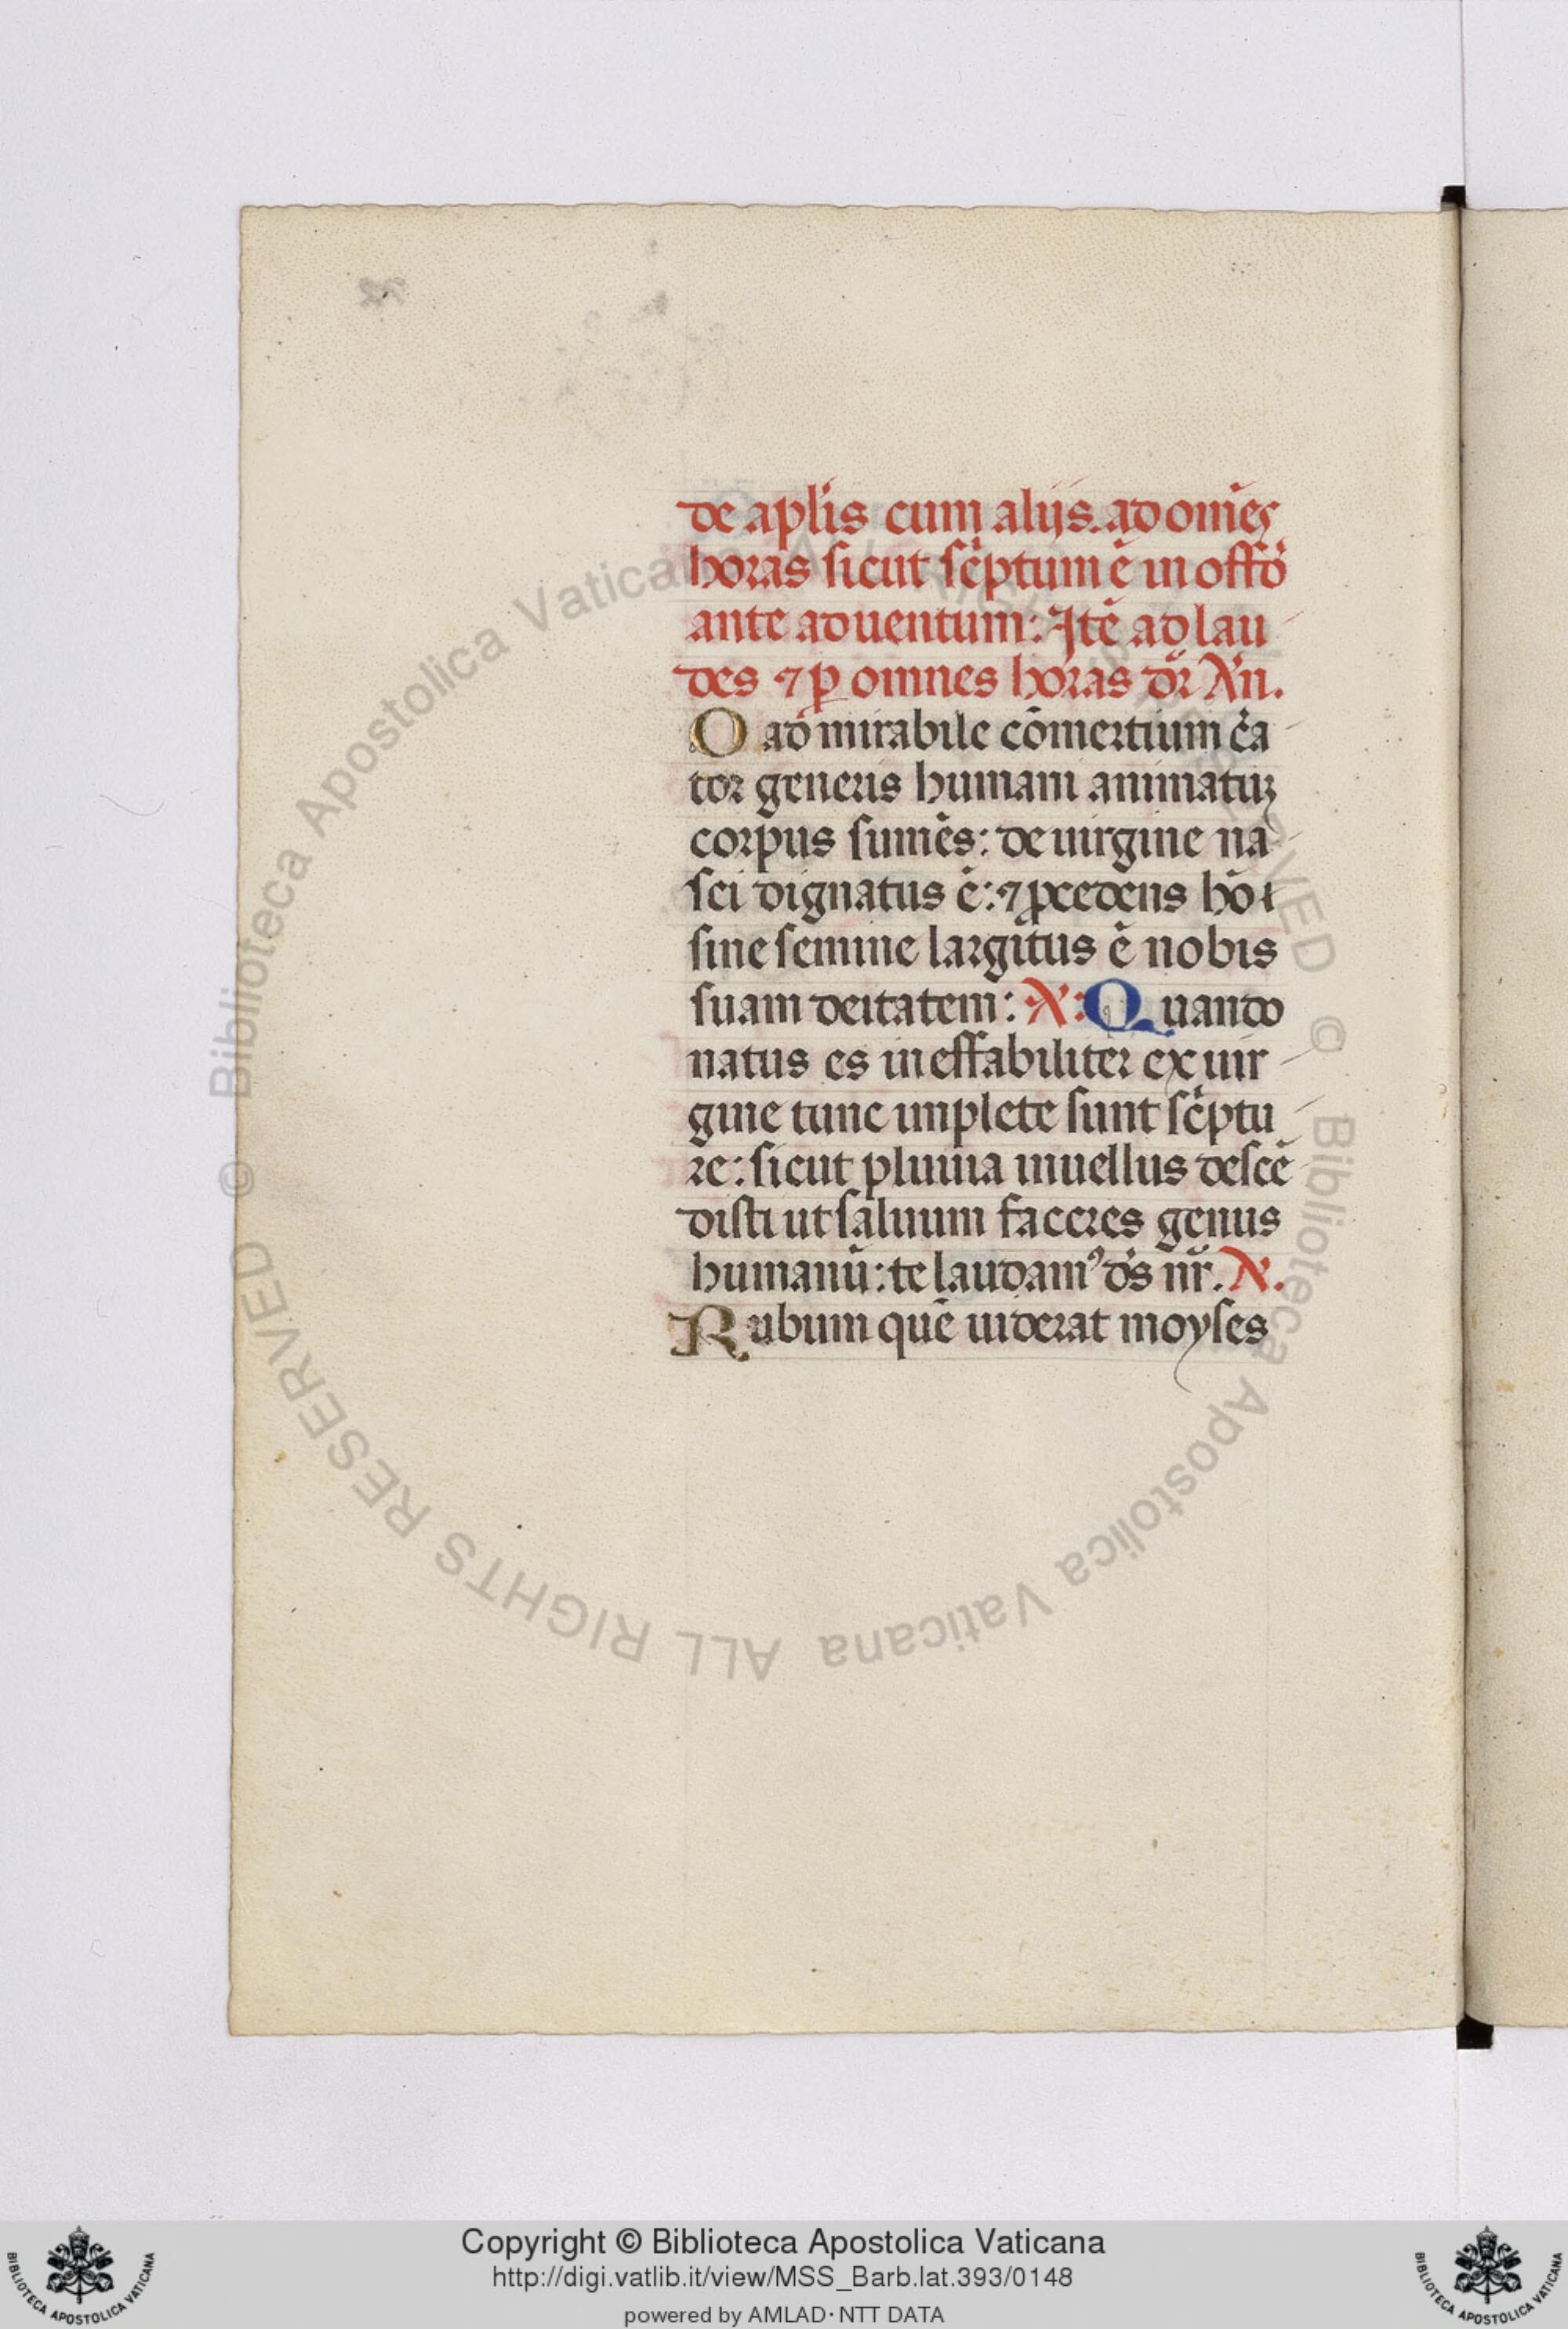 de aplis cum alijs. ad om̄es
horas sicut sc̉ptum ē in offō
ante aduentum: Jtē ad lau
des ⁊ ꝑ omnes horas dr̄ An̄.
O admirabile cōmertium c̉a
tor generis humani animatuꝫ
corpus sumēs: de uirgine na
sci dignatus ē: ⁊ ꝓcedens hō
sine semine largitus ē nobis
suam deitatem: A: Quando
natus es ineffabiliter ex uir
gine tunc implete sunt sc̉ptu
re: sicut pluuia in uellus descē
disti ut saluum faceres genus
humanū: te laudamꝰ ds̄ nr̄. A.
Rubum quē uiderat moyses
© Biblioteca Apostolica Vaticana ALL RIGHTS RESERVED © Biblioteca Apostolica Vaticana ALL RIGHTS RESERVED
Copyright © Biblioteca Apostolica Vaticana
http://digi.vatlib.it/view/MSS_Barb.lat.393/0148
powered by AMLAD·NTT DATA
BIBLIOTECA APOSTOLICA VATICANA
BIBLIOTECA APOSTOLICA VATICANA